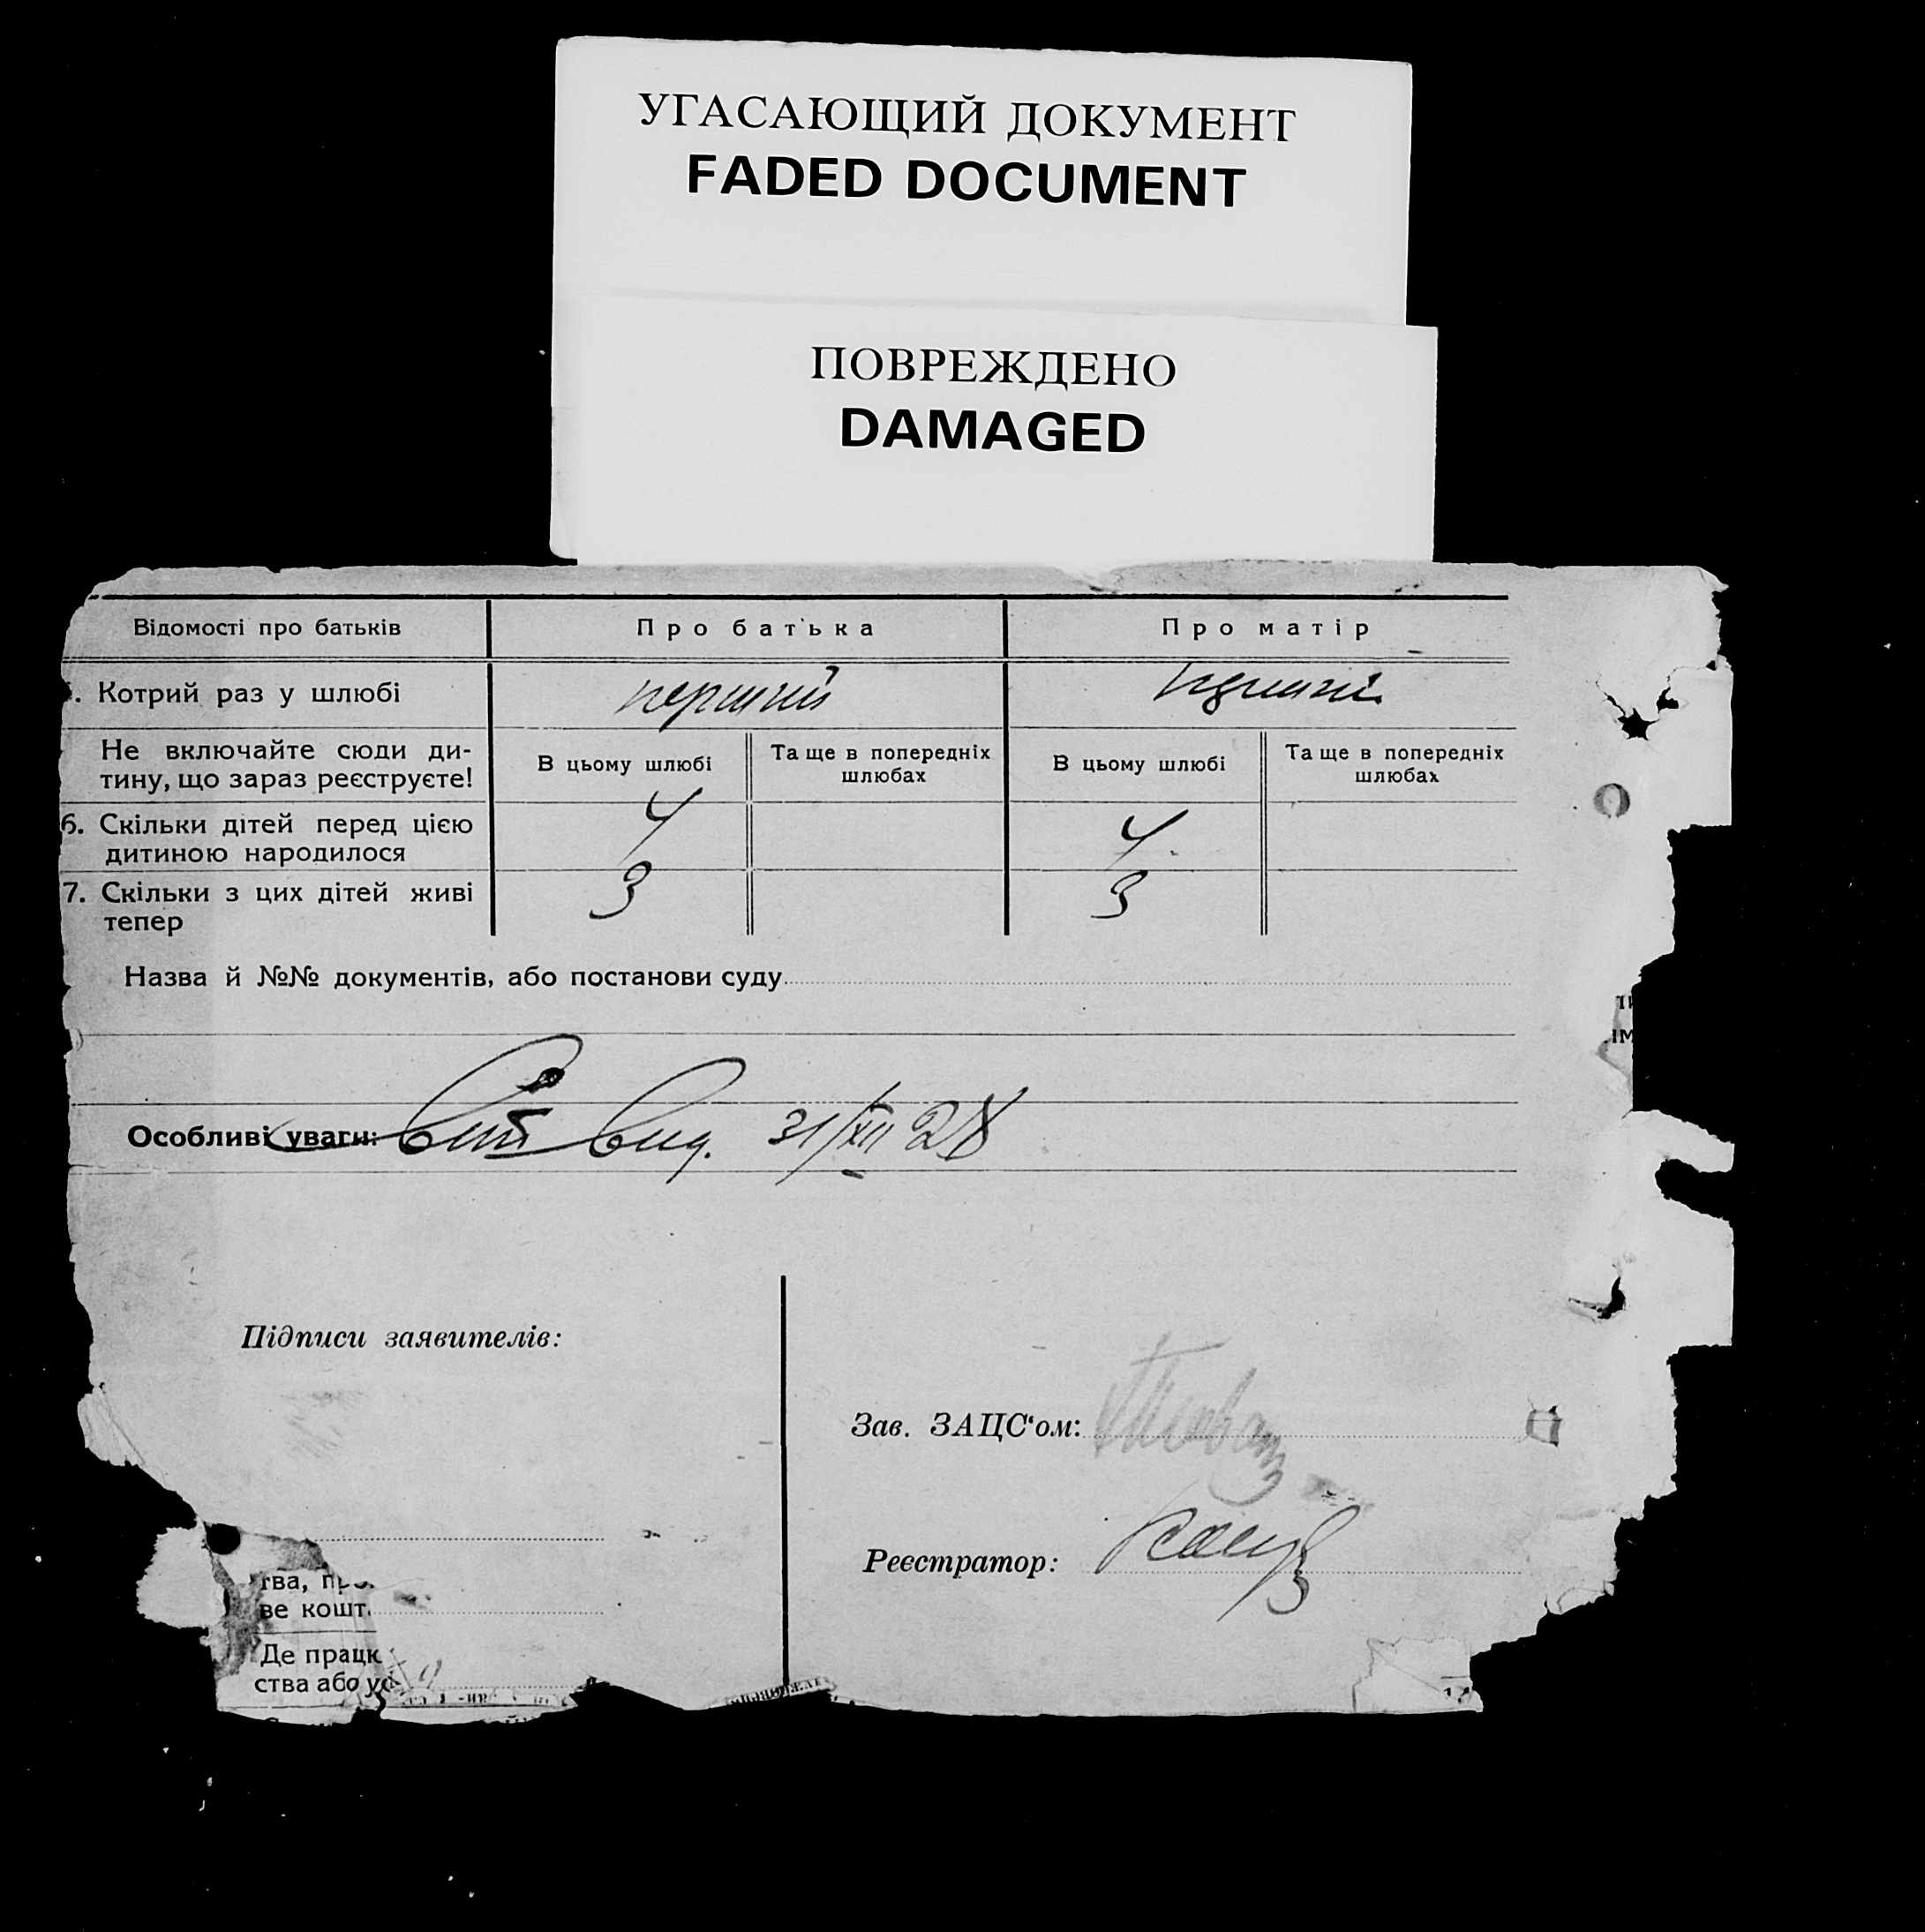 УГАСАЮЩИЙ ДОКУМЕНТ
FADED DOCUMENT
ПОВРЕЖДЕНО
DAMAGED
Відомості про батьків
Про батька
Про матір
. Котрий раз у шлюбі
перший
Не включайте сюди ди-
тину, що зараз реєструєте!
В цьому шлюбі
Та ще в попередніх
шлюбах
В цьому шлюбі
Та ще в попередніх
шлюбах
6. Скільки дітей перед цією
дитиною народилося
4
4
7. Скільки з цих дітей живі
тепер
3
3
Назва й №№ документів, або постанови суду
Особливі уваги: 31/XII 28
Підписи заявителів:
Зав. ЗАЦС‘ом:
Реєстратор:
тва,
ве кошт.
Де працю
ства або ус